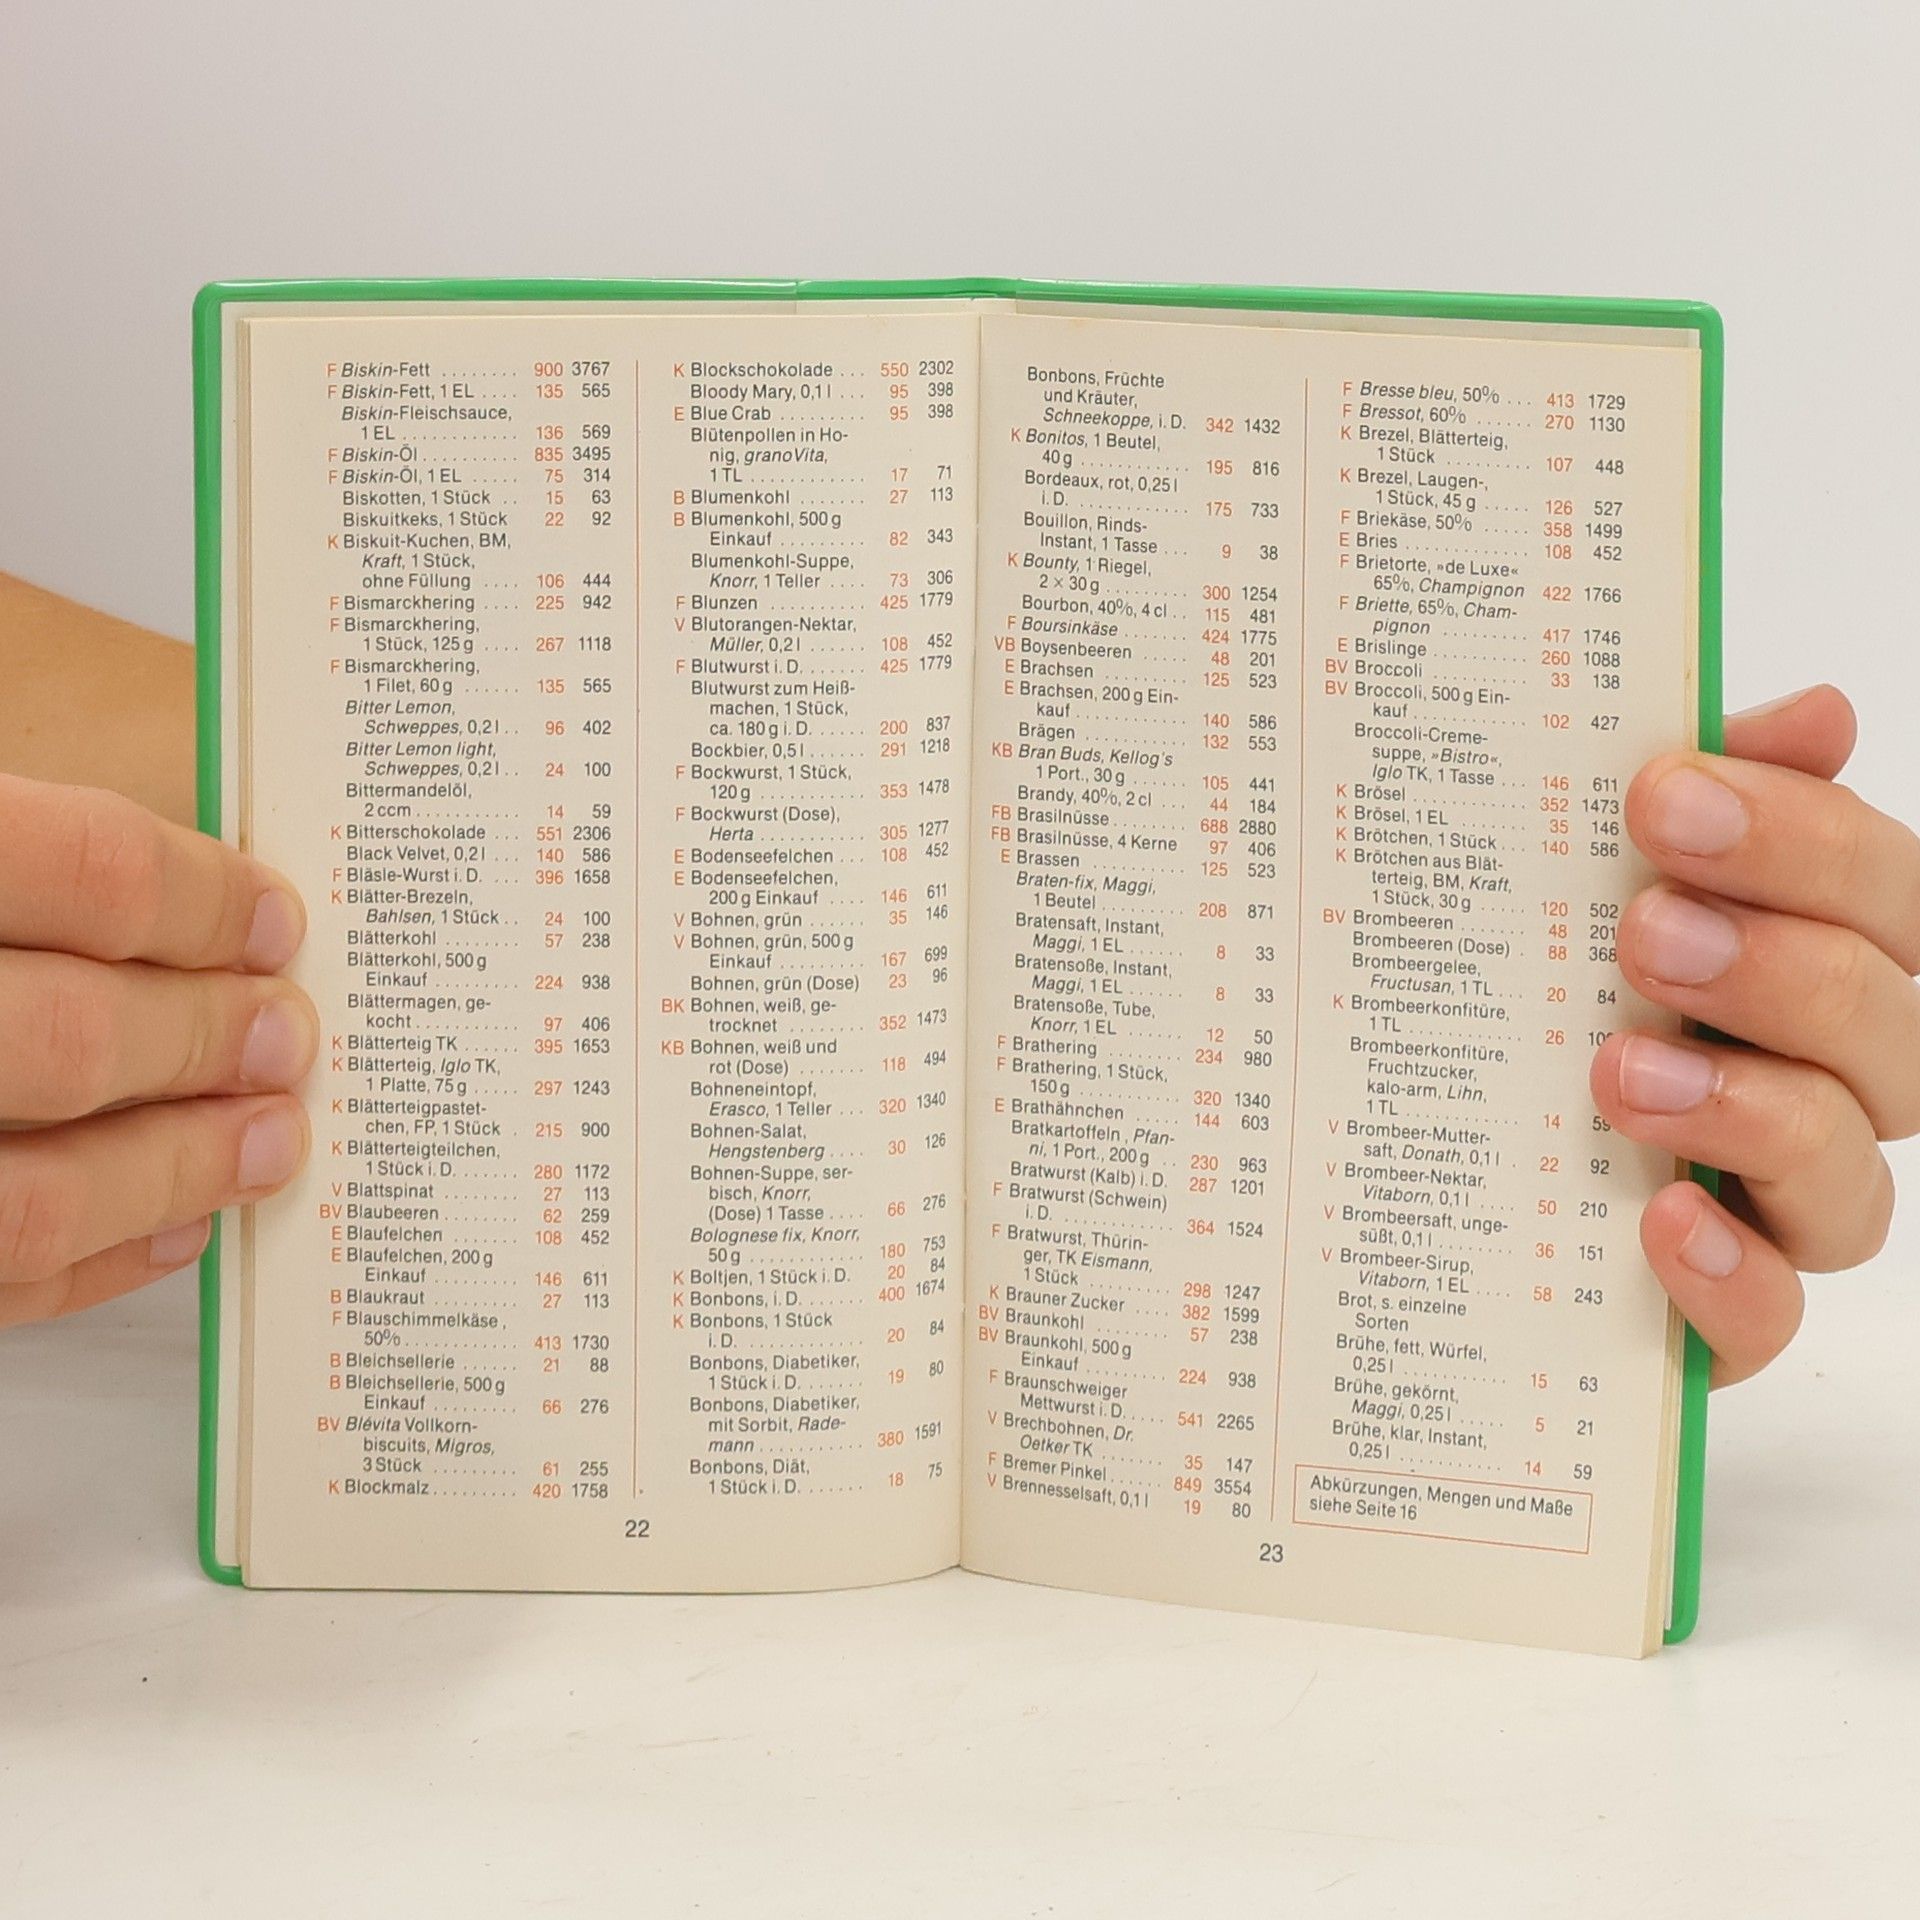 F Biskin-Fett ........ 900 3767
F Biskin-Fett, 1 EL .... 135 565
Biskin-Fleischsauce,
1 EL ............ 136 569
F Biskin-Öl .......... 835 3495
F Biskin-Öl, 1 EL .... 75 314
Biskotten, 1 Stück .. 15 63
Biskuitkeks, 1 Stück 22 92
K Biskuit-Kuchen, BM,
Kraft, 1 Stück,
ohne Füllung .... 106 444
F Bismarckhering .... 225 942
F Bismarckhering,
1 Stück, 125 g .... 267 1118
F Bismarckhering,
1 Filet, 60 g ...... 135 565
Bitter Lemon,
Schweppes, 0,2 l .. 96 402
Bitter Lemon light,
Schweppes, 0,2 l .. 24 100
Bittermandelöl,
2 ccm ........... 14 59
K Bitterschokolade ... 551 2306
Black Velvet, 0,2 l ... 140 586
F Bläsle-Wurst i. D. ... 396 1658
K Blätter-Brezeln,
Bahlsen, 1 Stück .. 24 100
Blätterkohl ........ 57 238
Blätterkohl, 500 g
Einkauf ......... 224 938
Blättermagen, ge-
kocht ........... 97 406
K Blätterteig TK ...... 395 1653
K Blätterteig, Iglo TK,
1 Platte, 75 g ..... 297 1243
K Blätterteigpastet-
chen, FP, 1 Stück . 215 900
K Blätterteigteilchen,
1 Stück i. D. ...... 280 1172
V Blattspinat ........ 27 113
BV Blaubeeren ........ 62 259
E Blaufelchen ....... 108 452
E Blaufelchen, 200 g
Einkauf ......... 146 611
B Blaukraut ......... 27 113
F Blauschimmelkäse,
50% ............ 413 1730
B Bleichsellerie ...... 21 88
B Bleichsellerie, 500 g
Einkauf ......... 66 276
BV Blévita Vollkorn-
biscuits, Migros,
3 Stück ......... 61 255
K Blockmalz ......... 420 1758
22
K Blockschokolade ... 550 2302
Bloody Mary, 0,1 l ... 95 398
E Blue Crab ......... 95 398
Blütenpollen in Ho-
nig, granoVita,
1 TL ............ 17 71
B Blumenkohl ....... 27 113
B Blumenkohl, 500 g
Einkauf ......... 82 343
Blumenkohl-Suppe,
Knorr, 1 Teller .... 73 306
F Blunzen .......... 425 1779
V Blutorangen-Nektar,
Müller, 0,2 l ...... 108 452
F Blutwurst i. D. ...... 425 1779
Blutwurst zum Heiß-
machen, 1 Stück,
ca. 180 g i. D. ...... 200 837
Bockbier, 0,5 l ...... 291 1218
F Bockwurst, 1 Stück,
120 g ........... 353 1478
F Bockwurst (Dose),
Herta ........... 305 1277
E Bodenseefelchen ... 108 452
E Bodenseefelchen,
200 g Einkauf ..... 146 611
V Bohnen, grün ...... 35 146
V Bohnen, grün, 500 g
Einkauf ......... 167 699
Bohnen, grün (Dose) 23 96
BK Bohnen, weiß, ge-
trocknet ........ 352 1473
KB Bohnen, weiß und
rot (Dose) ....... 118 494
Bohneneintopf,
Erasco, 1 Teller ... 320 1340
Bohnen-Salat,
Hengstenberg .... 30 126
Bohnen-Suppe, ser-
bisch, Knorr,
(Dose) 1 Tasse .... 66 276
Bolognese fix, Knorr,
50 g ............ 180 753
K Boltjen, 1 Stück i. D. 20 84
K Bonbons, i. D. ....... 400 1674
K Bonbons, 1 Stück
i. D. ............. 20 84
Bonbons, Diabetiker,
1 Stück i. D. ....... 19 80
Bonbons, Diabetiker,
mit Sorbit, Rade-
mann ........... 380 1591
Bonbons, Diät,
1 Stück i. D. ....... 18 75
Bonbons, Früchte
und Kräuter,
Schneekoppe, i. D. 342 1432
K Bonitos, 1 Beutel,
40 g ............ 195 816
Bordeaux, rot, 0,25 l
i. D. ............. 175 733
Bouillon, Rinds-
Instant, 1 Tasse ... 9 38
K Bounty, 1 Riegel,
2 × 30 g .......... 300 1254
Bourbon, 40%, 4 cl .. 115 481
F Boursinkäse ....... 424 1775
VB Boysenbeeren ..... 48 201
E Brachsen ......... 125 523
E Brachsen, 200 g Ein-
kauf ............ 140 586
Brägen ........... 132 553
KB Bran Buds, Kellog's
1 Port., 30 g ....... 105 441
Brandy, 40%, 2 cl ... 44 184
FB Brasilnüsse ........ 688 2880
FB Brasilnüsse, 4 Kerne 97 406
E Brassen .......... 125 523
Braten-fix, Maggi,
1 Beutel ......... 208 871
Bratensaft, Instant,
Maggi, 1 EL ...... 8 33
Bratensoße, Instant,
Maggi, 1 EL ...... 8 33
Bratensoße, Tube,
Knorr, 1 EL ...... 12 50
F Brathering ........ 234 980
F Brathering, 1 Stück,
150 g ........... 320 1340
E Brathähnchen ..... 144 603
Bratkartoffeln, Pfan-
ni, 1 Port., 200 g .. 230 963
Bratwurst (Kalb) i. D. 287 1201
F Bratwurst (Schwein)
i. D. ............ 364 1524
F Bratwurst, Thürin-
ger, TK Eismann,
1 Stück ......... 298 1247
K Brauner Zucker .... 382 1599
BV Braunkohl ........ 57 238
BV Braunkohl, 500 g
Einkauf ......... 224 938
F Braunschweiger
Mettwurst i. D. .... 541 2265
V Brechbohnen, Dr.
Oetker TK ....... 35 147
F Bremer Pinkel ...... 849 3554
V Brennesselsaft, 0,1 l 19 80
23
F Bresse bleu, 50% ... 413 1729
F Bressot, 60% ...... 270 1130
K Brezel, Blätterteig,
1 Stück ......... 107 448
K Brezel, Laugen-,
1 Stück, 45 g ..... 126 527
F Briekäse, 50% ..... 358 1499
E Bries ............ 108 452
F Brietorte, »de Luxe«
65%, Champignon 422 1766
F Briette, 65%, Cham-
pignon ......... 417 1746
E Brislinge .......... 260 1088
BV Broccoli .......... 33 138
BV Broccoli, 500 g Ein-
kauf ............ 102 427
Broccoli-Creme-
suppe, »Bistro«,
Iglo TK, 1 Tasse ... 146 611
K Brösel ............ 352 1473
K Brösel, 1 EL ....... 35 146
K Brötchen, 1 Stück ... 140 586
K Brötchen aus Blät-
terteig, BM, Kraft,
1 Stück, 30 g ..... 120 502
BV Brombeeren ....... 48 201
Brombeeren (Dose) . 88 368
Brombeergelee,
Fructusan, 1 TL ... 20 84
K Brombeerkonfitüre,
1 TL ............ 26
Brombeerkonfitüre,
Fruchtzucker,
kalo-arm, Lihn,
1 TL ............ 14 59
V Brombeer-Mutter-
saft, Donath, 0,1 l . 22 92
V Brombeer-Nektar,
Vitaborn, 0,1 l .... 50 210
V Brombeersaft, unge-
süßt, 0,1 l ........ 36 151
V Brombeer-Sirup,
Vitaborn, 1 EL .... 58 243
Brot, s. einzelne
Sorten
Brühe, fett, Würfel,
0,25 l ........... 15 63
Brühe, gekörnt,
Maggi, 0,25 l ..... 5 21
Brühe, klar, Instant,
0,25 l ........... 14 59
Abkürzungen, Mengen und Maße
siehe Seite 16